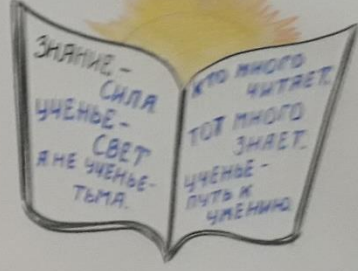 ЗНАНИЕ -
СИЛА
УЧЕНЬЕ -
СВЕТ
А НЕ УЧЕНЬЕ -
ТЬМА.
КТО МНОГО
ЧИТАЕТ.
ТОТ МНОГО
ЗНАЕТ.
УЧЕНЬЕ -
ПУТЬ К
УМЕНИЮ